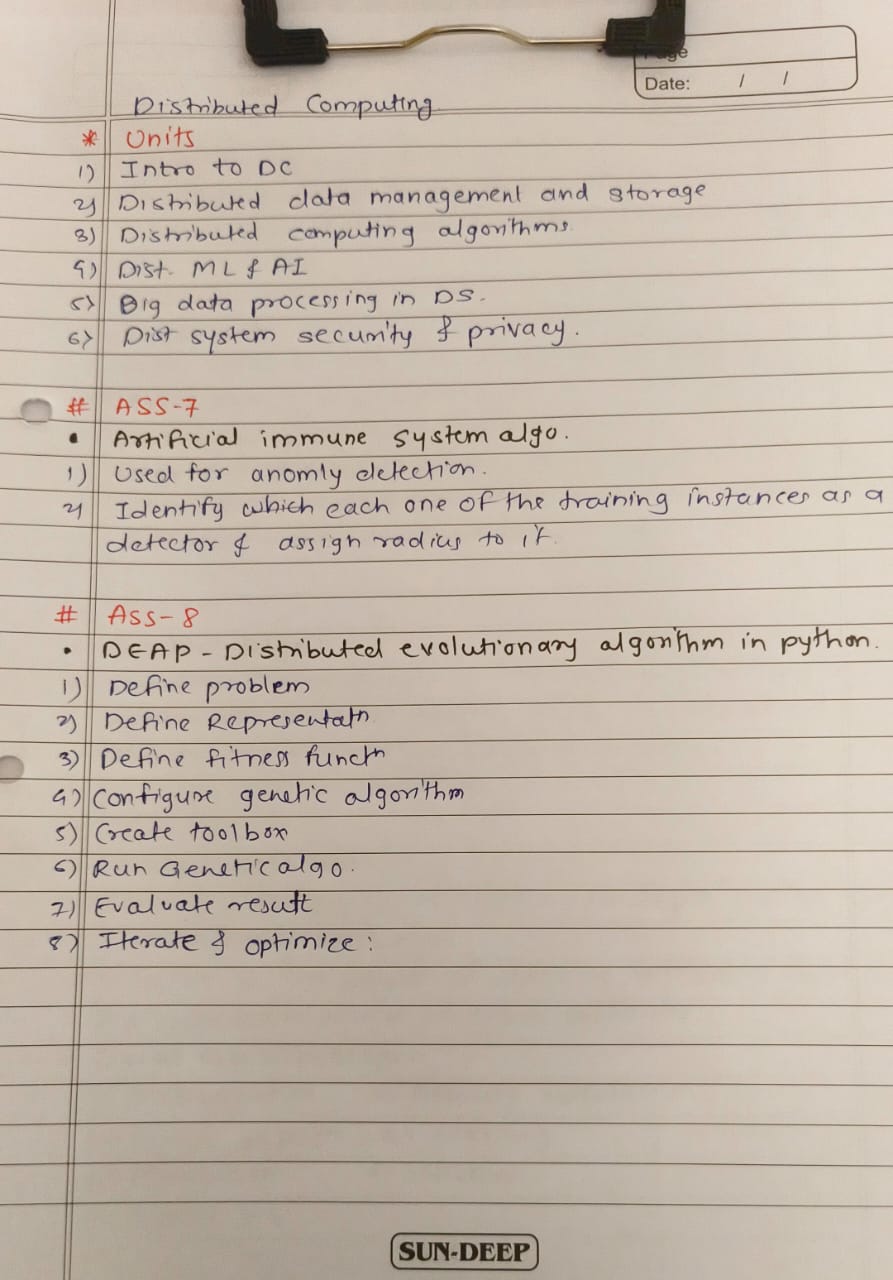 Page
Date: / /
Distributed Computing
* Units
1) Intro to DC
2) Distributed data management and storage
3) Distributed computing algorithms.
4) Dist. ML & AI
5) Big data processing in DS.
6) Dist system security & privacy.
# ASS-7
• Artificial immune system algo.
1) Used for anomly detection.
2) Identify which each one of the training instances as a
detector & assign radius to it.
# Ass-8
• DEAP - Distributed evolutionary algorithm in python.
1) Define problem
2) Define Representatn
3) Define fitness functn
4) Configure genetic algorithm
5) Create toolbox
6) Run Genetic algo.
7) Evaluate result
8) Iterate & optimize :
SUN-DEEP